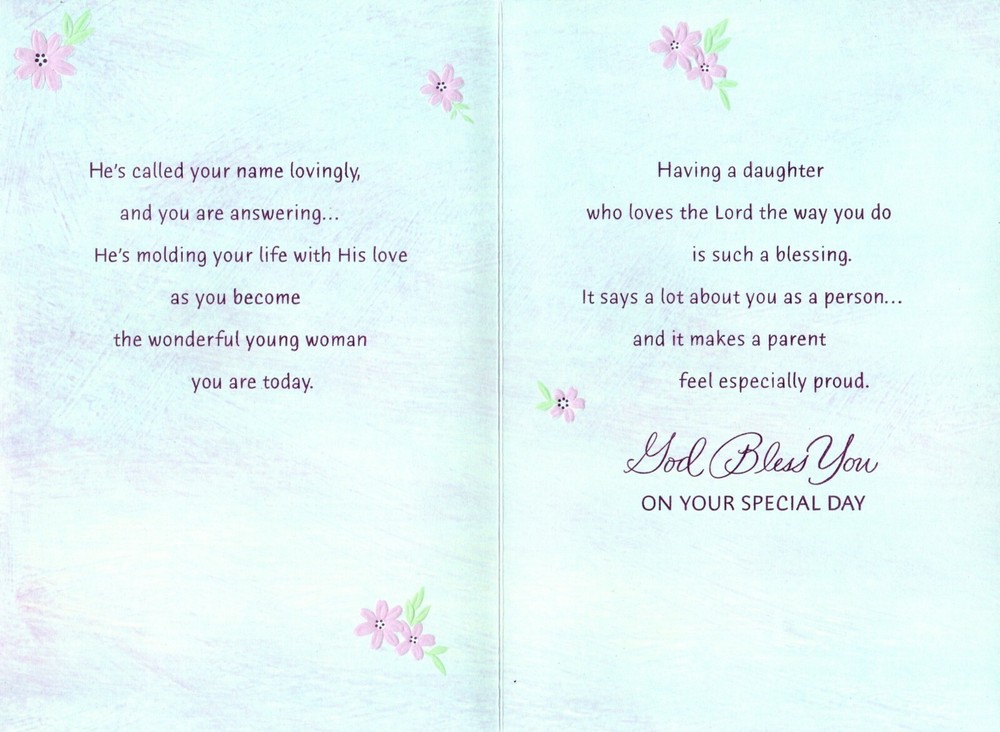 He's called your name lovingly,
and you are answering...
He's molding your life with His love
as you become
the wonderful young woman
you are today.
Having a daughter
who loves the Lord the way you do
is such a blessing.
It says a lot about you as a person...
and it makes a parent
feel especially proud.
God Bless You
ON YOUR SPECIAL DAY